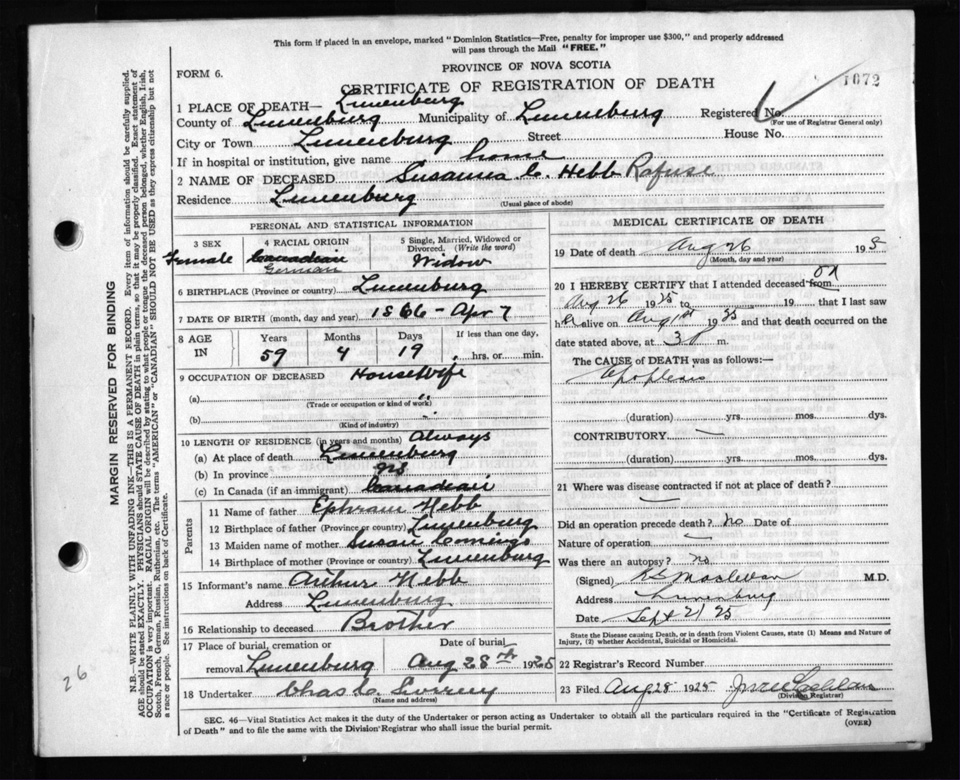 This form if placed in an envelope, marked "Dominion Statistics—Free, penalty for improper use $300," and properly addressed
will pass through the Mail "FREE."
PROVINCE OF NOVA SCOTIA
FORM 6.
CERTIFICATE OF REGISTRATION OF DEATH
1072
1 PLACE OF DEATH— Lunenburg
County of Lunenburg Municipality of Lunenburg Registered No.
(For use of Registrar General only)
City or Town Lunenburg Street House No.
If in hospital or institution, give name home
2 NAME OF DECEASED Susanna C. Hebb Rafuse
Residence Lunenburg
(Usual place of abode)
PERSONAL AND STATISTICAL INFORMATION
3 SEX Female
4 RACIAL ORIGIN Canadian German
5 Single, Married, Widowed or Divorced. (Write the word) Widow
6 BIRTHPLACE (Province or country) Lunenburg
7 DATE OF BIRTH (month, day and year) 1866 - Apr 7
8 AGE IN Years 59 Months 4 Days 19 If less than one day, hrs. or min.
9 OCCUPATION OF DECEASED Housewife
(a) "
(Trade or occupation or kind of work)
(b) "
(Kind of industry)
10 LENGTH OF RESIDENCE (in years and months) Always
(a) At place of death Lunenburg
(b) In province NS
(c) In Canada (if an immigrant) Canadian
Parents
11 Name of father Ephraim Hebb
12 Birthplace of father (Province or country) Lunenburg
13 Maiden name of mother Susan Comingo
14 Birthplace of mother (Province or country) Lunenburg
15 Informant's name Arthur Hebb
Address Lunenburg
16 Relationship to deceased Brother
17 Place of burial, cremation or removal Lunenburg Date of burial Aug 28th 1925
18 Undertaker Chas
(Name and address)
MEDICAL CERTIFICATE OF DEATH
19 Date of death Aug 26 192
(Month, day and year)
20 I HEREBY CERTIFY that I attended deceased from on
Aug 26 1925 to 19 that I last saw
her alive on Aug 1st 1925 and that death occurred on the
date stated above, at 3 P m.
The CAUSE OF DEATH was as follows:—
Apoplexy
(duration) yrs. mos. dys.
CONTRIBUTORY —
(duration) yrs. mos. dys.
21 Where was disease contracted if not at place of death?
—
Did an operation precede death? No Date of
Nature of operation —
Was there an autopsy? no
(Signed) M.D.
Address Lunenburg
Date Sept 21 25
State the Disease causing Death, or in death from Violent Causes, state (1) Means and Nature of
Injury, (2) whether Accidental, Suicidal or Homicidal.
22 Registrar's Record Number
23 Filed Aug 28 1925
(Division Registrar)
SEC. 46—Vital Statistics Act makes it the duty of the Undertaker or person acting as Undertaker to obtain all the particulars required in the "Certificate of Registration
of Death" and to file the same with the Division Registrar who shall issue the burial permit.
(OVER)
MARGIN RESERVED FOR BINDING
N.B.—WRITE PLAINLY WITH UNFADING INK—THIS IS A PERMANENT RECORD. Every item of information should be carefully supplied.
AGE should be stated EXACTLY. PHYSICIANS should STATE CAUSE OF DEATH in plain terms, so that it may be properly classified. Exact statement of
OCCUPATION is very important. RACIAL ORIGIN will be described by stating to what people or tongue the deceased person belonged, whether English, Irish,
Scotch, French, German, Russian, Ruthenian, etc. The terms "AMERICAN" or "CANADIAN" SHOULD NOT BE USED as they express citizenship but not
a race or people. See instructions on back of Certificate.
26